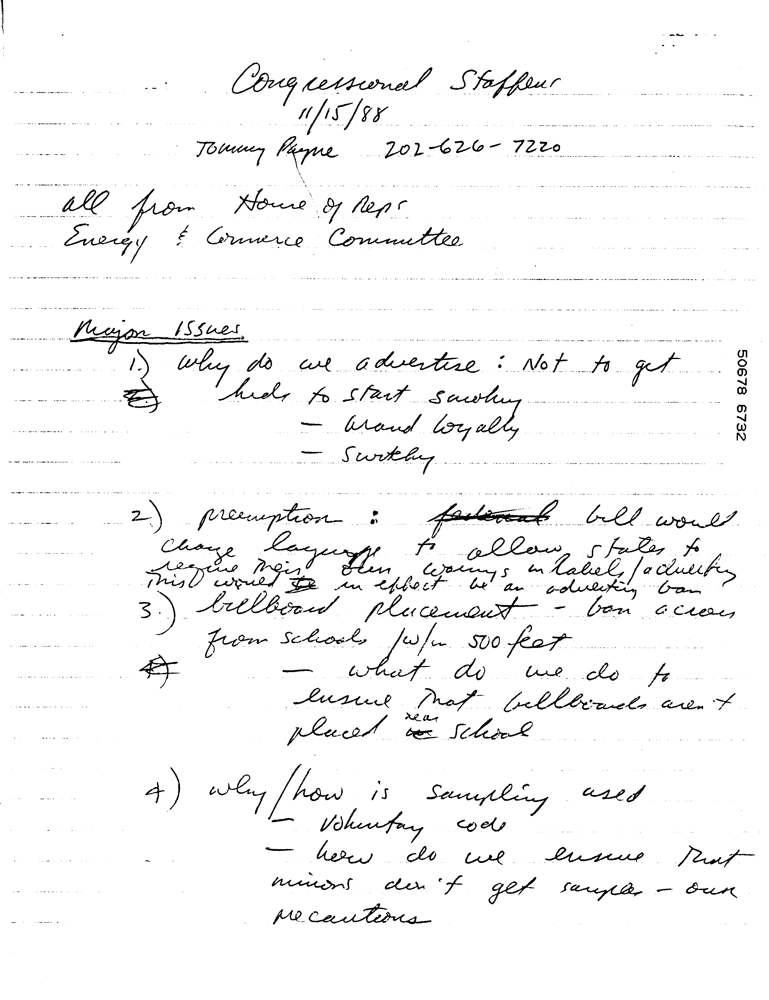 Congressional Staffers
11/15/88
Tommy Payne 202-626-7220
all from House of Reps
Energy & Commerce Committee
Major Issues
1.) why do we advertise : Not to get
kids to start smoking
— brand loyalty
— switching
2.) preemption : federal bill would
change language to allow states to
require their own warnings on labels/advertising
this would in effect be an advertising ban
3.) billboard placement - ban across
from schools /w/in 500 feet
— what do we do to
ensure that billboards aren't
placed near school
4) why/how is sampling used
— voluntary code
— how do we ensure that
minors don't get samples - our
precautions
50678 6732